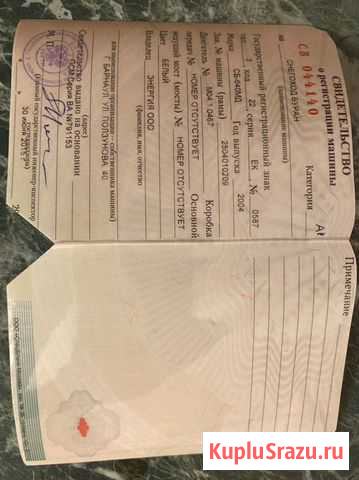 СВИДЕТЕЛЬСТВО
о регистрации машины
СВ 044140
Категория
на СНЕГОХОД БУРАН
(наименование машины)
Государственный регистрационный знак
тип 3 код 22, серия ЕК № 0587
Марка СБ-640МД Год выпуска 2004
Зав. № машины (рамы) 2504010209
Двигатель № Коробка
передач № НОМЕР ОТСУТСТВУЕТ Основной
ведущий мост (мосты) № НОМЕР ОТСУТСТВУЕТ
Цвет БЕЛЫЙ
Владелец ЭНЕРГИЯ ООО
(фамилия, имя, отчество)
или наименование организации - собственника машины)
Г БАРНАУЛ УЛ ПОЛЗУНОВА 40
(адрес)
Свидетельство выдано на основании
М.П.
(главный государственный инженер-инспектор
Примечание
KupluSrazu.ru